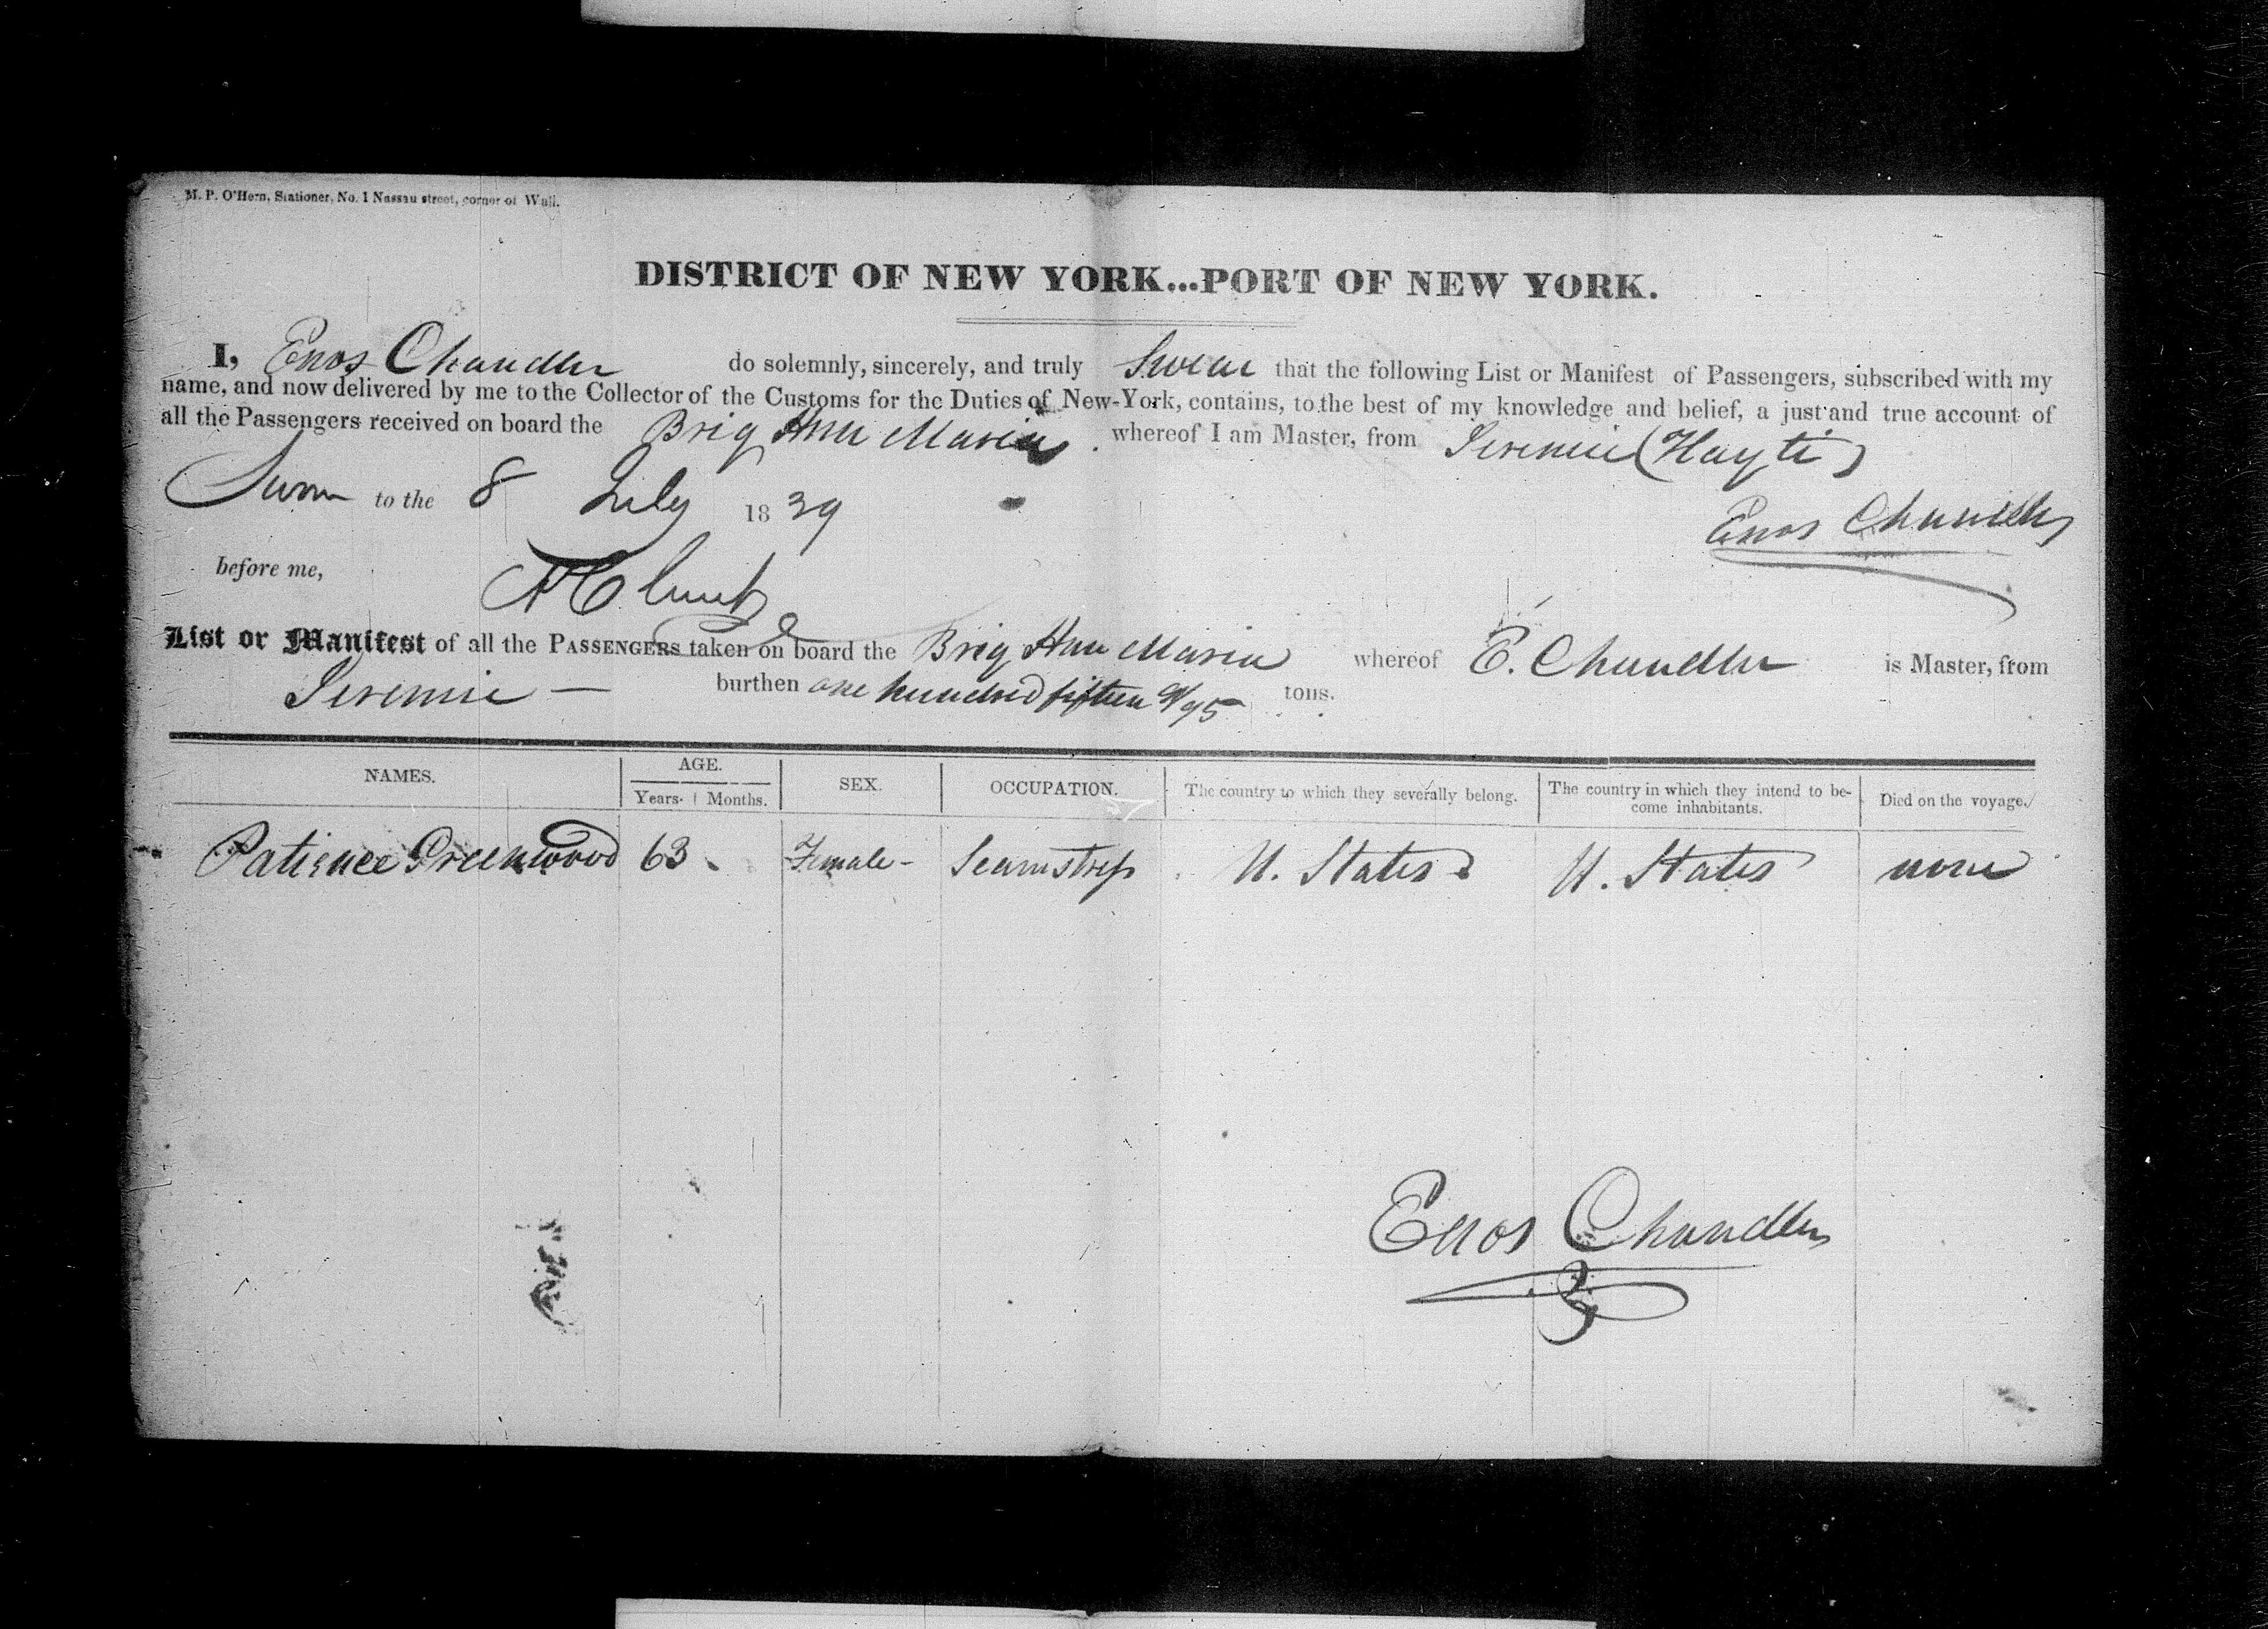 M. P. O'Hern, Stationer, No. 1 Nassau street, corner of Wall.
DISTRICT OF NEW YORK...PORT OF NEW YORK.
I, Enos Chandler do solemnly, sincerely, and truly Swear that the following List or Manifest of Passengers, subscribed with my
name, and now delivered by me to the Collector of the Customs for the Duties of New-York, contains, to the best of my knowledge and belief, a just and true account of
all the Passengers received on board the Brig Ann Maria whereof I am Master, from Jeremie (Hayti)
Sworn to the 8 July 1839
Enos Chandler
before me,
List or Manifest of all the PASSENGERS taken on board the Brig Ann Maria whereof E. Chandler is Master, from
Jeremie — burthen one hundred fifteen /95 tons.
NAMES. AGE. SEX. OCCUPATION. The country to which they severally belong. The country in which they intend to be-
come inhabitants. Died on the voyage.
Years. Months.
Patience Greenwood 63 Female - Seamstress U. States U. States none
Enos Chandler